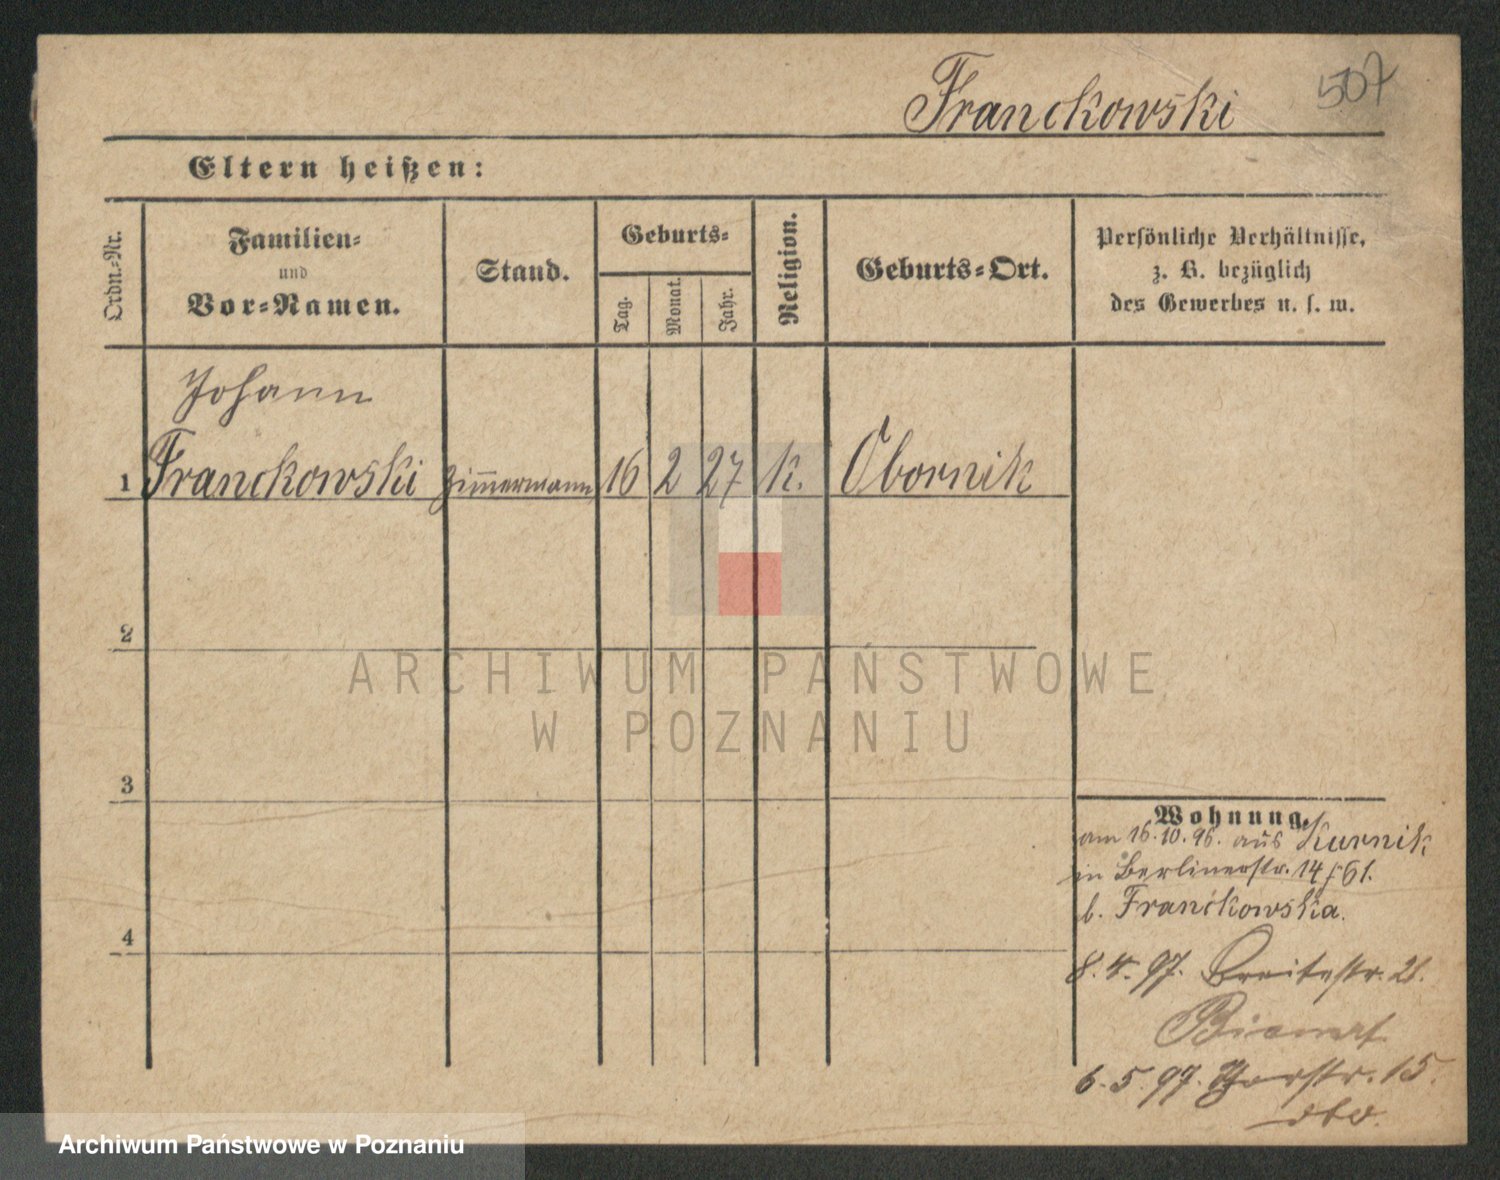 Franckowski
507
Eltern heißen:
Ordn.-Nr.
Familien-
und
Vor-Namen.
Stand.
Geburts-
Tag.
Monat.
Jahr.
Religion.
Geburts-Ort.
Persönliche Verhältnisse,
z. B. bezüglich
des Gewerbes u. s. w.
Johann
1 Franckowski Zimmermann 16 2 27 k. Obornik
2
3
4
Wohnung.
am 16.10.96. aus Kurnik
in Berlinerstr. 14
b. Franckowska.
8. 4. 97. Breitestr. 21.
6. 5. 97. 15.
ARCHIWUM PAŃSTWOWE
W POZNANIU
Archiwum Państwowe w Poznaniu